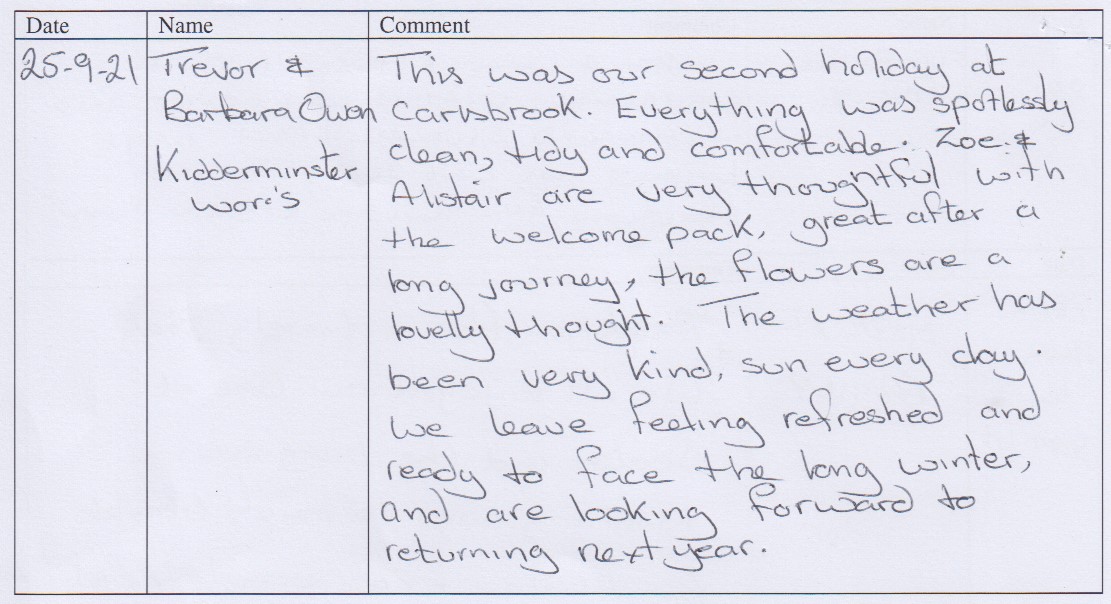 Date Name Comment
25-9-21 Trevor & This was our second holiday at
Barbara Owen Carisbrook. Everything was spotlessly
clean, tidy and comfortable. Zoe &
Kidderminster Alistair are very thoughtful with
worc's the welcome pack, great after a
long journey, the flowers are a
lovelly thought. The weather has
been very kind, sun every day.
we leave feeling refreshed and
ready to face the long winter,
and are looking forward to
returning next year.